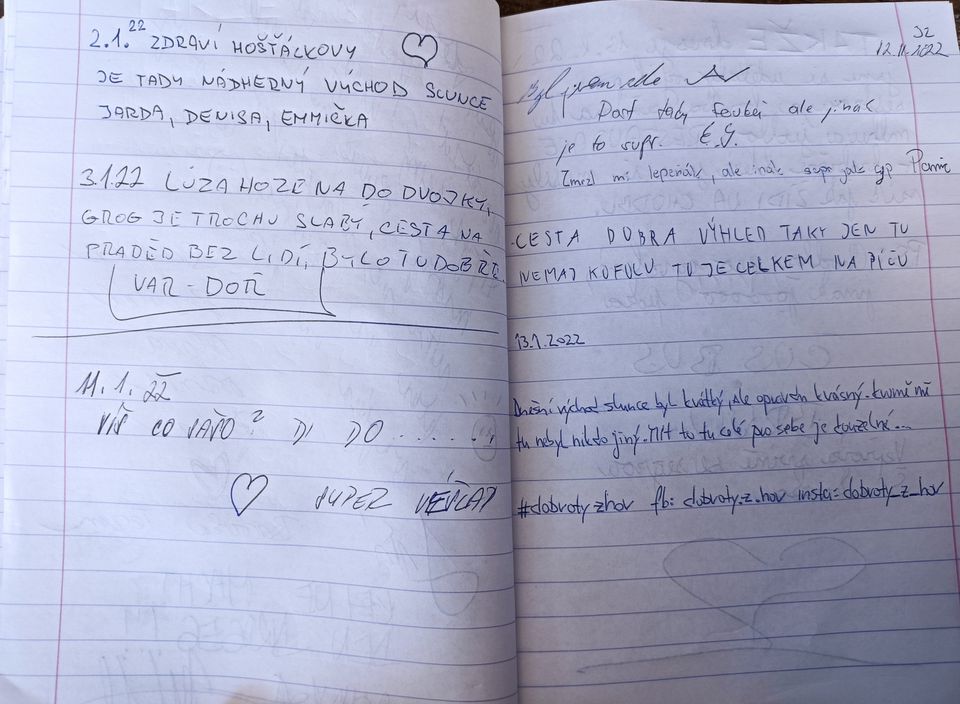 2.1.22 ZDRAVÍ HOŠŤÁLKOVY
JE TADY NÁDHERNÝ VÝCHOD SLUNCE
JARDA, DENISA, EMMIČKA
3.1.22 LŮZA HOZENA DO DVOJKY,
GROG JE TROCHU SLABÝ, CESTA NA
PRADĚD BEZ LIDÍ, BYLO TU DOBŘE.
VAR-DOR
11.1.22
VÍŠ CO JAŘO? DI DO ......
SUPER
32
12.11.2022
Byl jsem zde
Dost tady ale jinak
je to supr. E.G.
Zmrzl mi lepeňák, ale inak supr jak cyp
CESTA DOBRA VÝHLED TAKY JEN TU
NEMAJ KOFOLU TU JE CELKEM NA PIČU
13.1.2022
Dnešní východ slunce byl krátký, ale opravdu krásný. kromě mě
tu nebyl nikdo jiný. Mít to tu celé pro sebe je kouzelné...
#dobrotyzhov fb: dobroty.z.hov insta: dobroty_z_hov